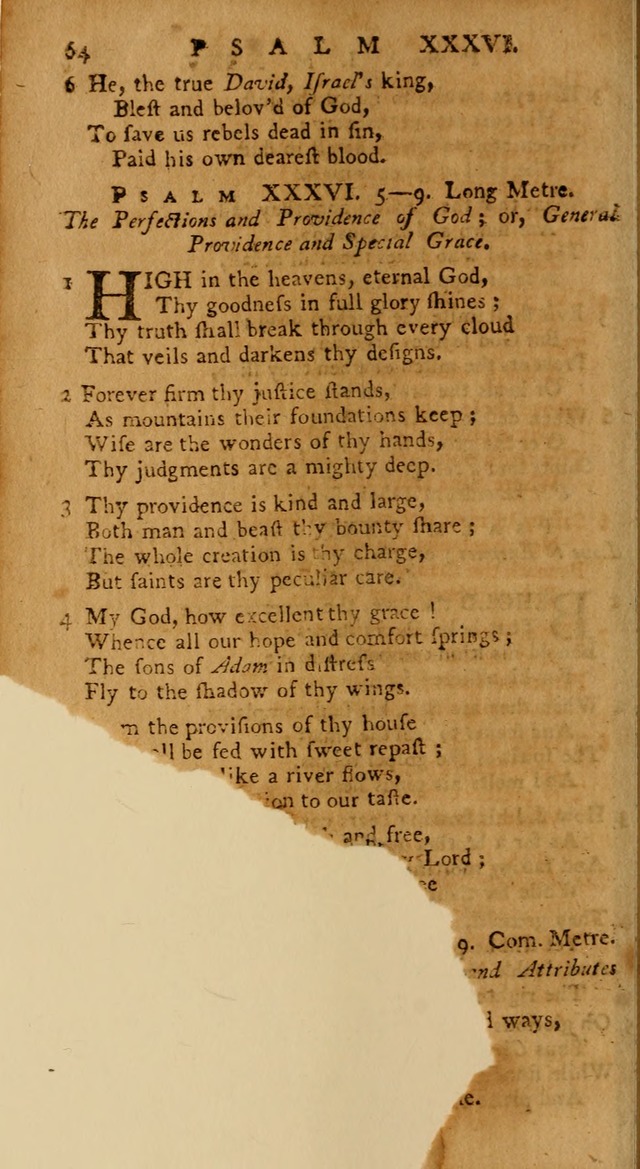 64 PSALM XXXVI.
6 He, the true David, Iſrael's king,
Bleſt and belov'd of God,
To ſave us rebels dead in ſin,
Paid his own deareſt blood.
PSALM XXXVI. 5—9. Long Metre.
The Perfections and Providence of God; or, General
Providence and Special Grace.
1 HIGH in the heavens, eternal God,
Thy goodneſs in full glory ſhines;
Thy truth ſhall break through every cloud
That veils and darkens thy deſigns.
2 Forever firm thy juſtice ſtands,
As mountains their foundations keep;
Wiſe are the wonders of thy hands,
Thy judgments are a mighty deep.
3 Thy providence is kind and large,
Both man and beaſt thy bounty ſhare;
The whole creation is thy charge,
But ſaints are thy peculiar care.
4 My God, how excellent thy grace!
Whence all our hope and comfort ſprings;
The ſons of Adam in diſtreſs
Fly to the ſhadow of thy wings.
the proviſions of thy houſe
be fed with ſweet repaſt;
like a river flows,
to our taſte.
and free,
Lord;
9. Com. Metre.
Attributes
ways,